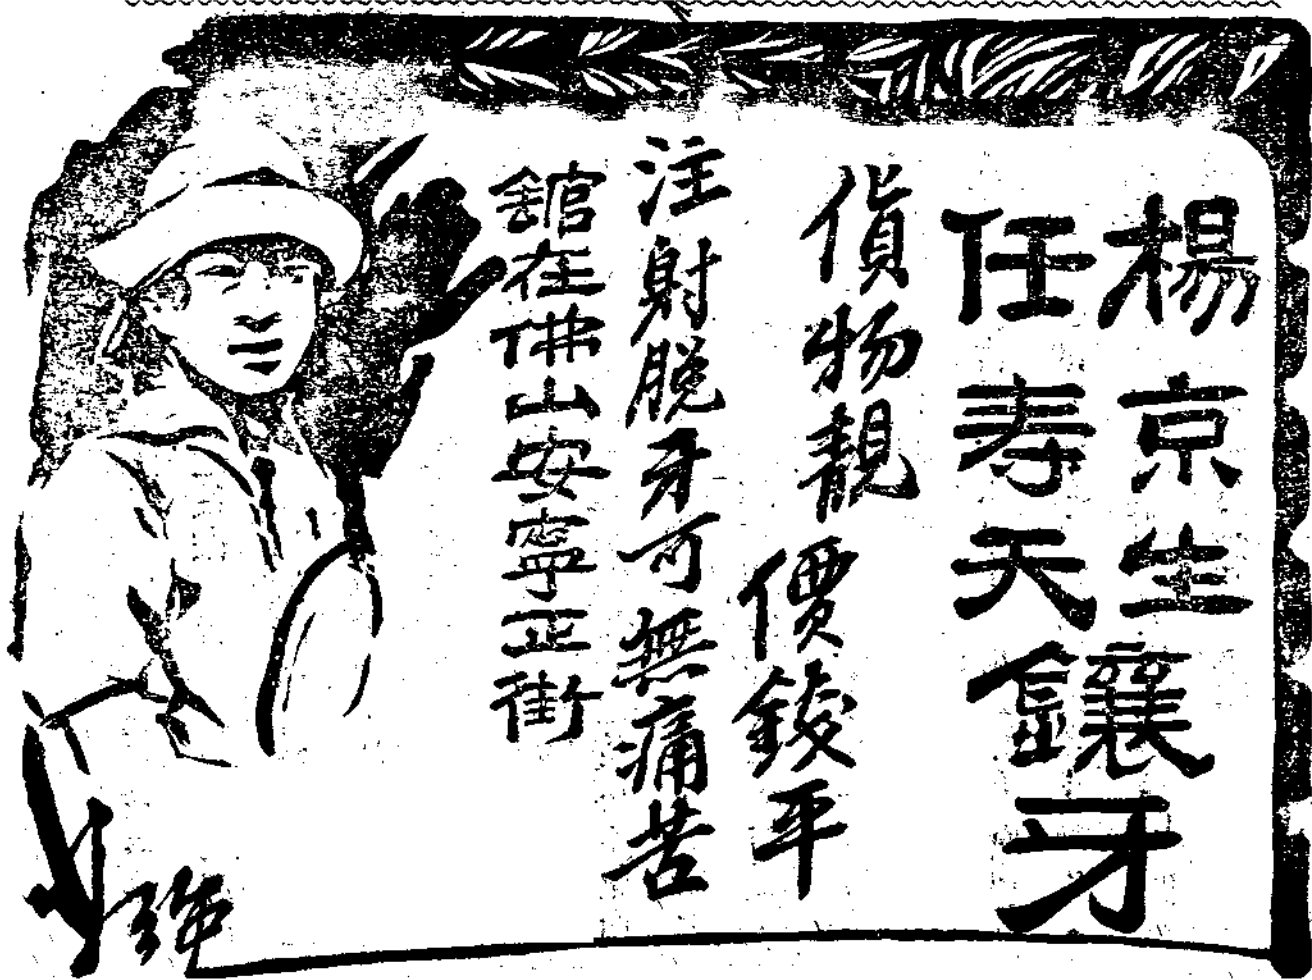 楊京生
任寿天
鑲牙
貨物靚
價錢平
注射脱牙可無痛苦
舘在佛山安寧正街